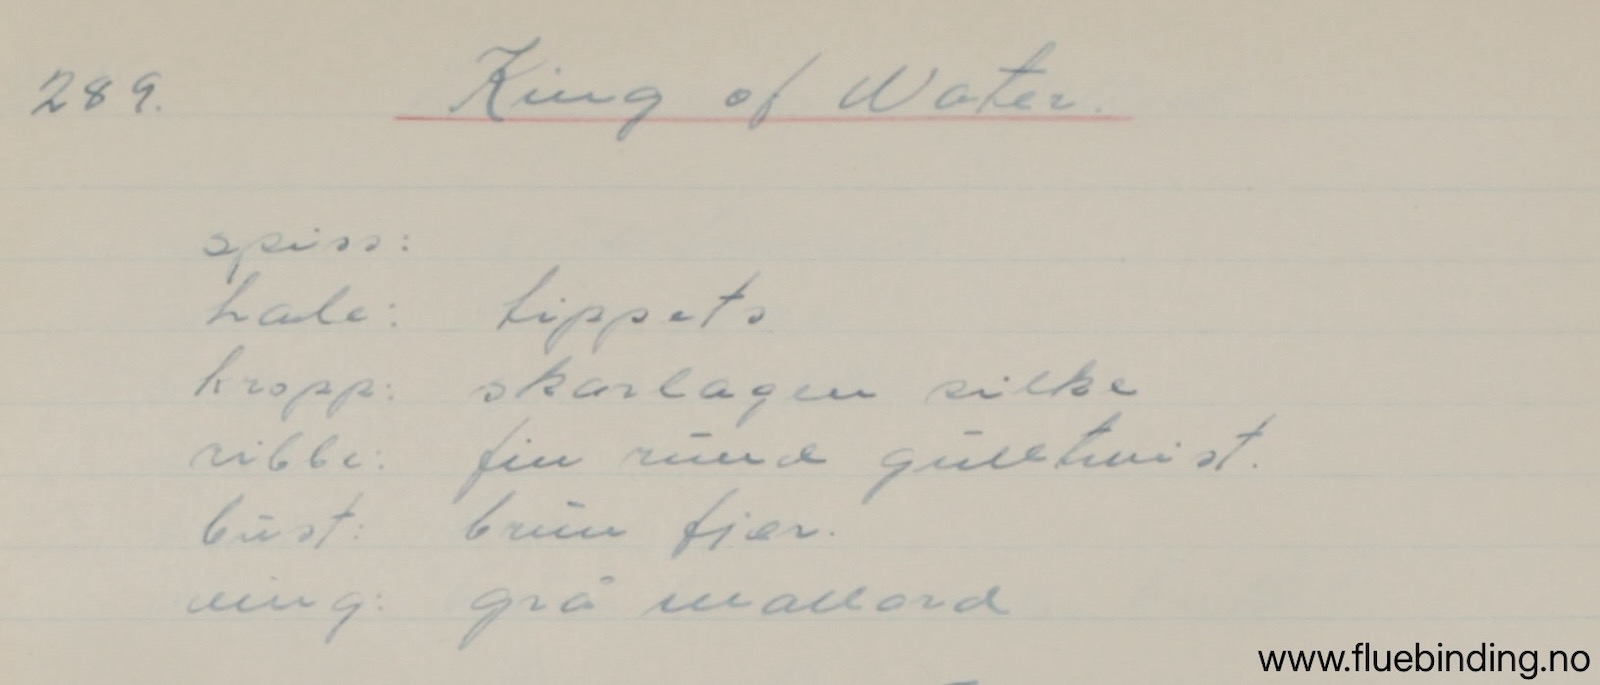 289. King of Water.
spiss:
hale: tippets
kropp: skarlagen silke
ribbe: fin rund gulltwist.
bust: brun fjær.
ving: grå mallard
www.fluebinding.no